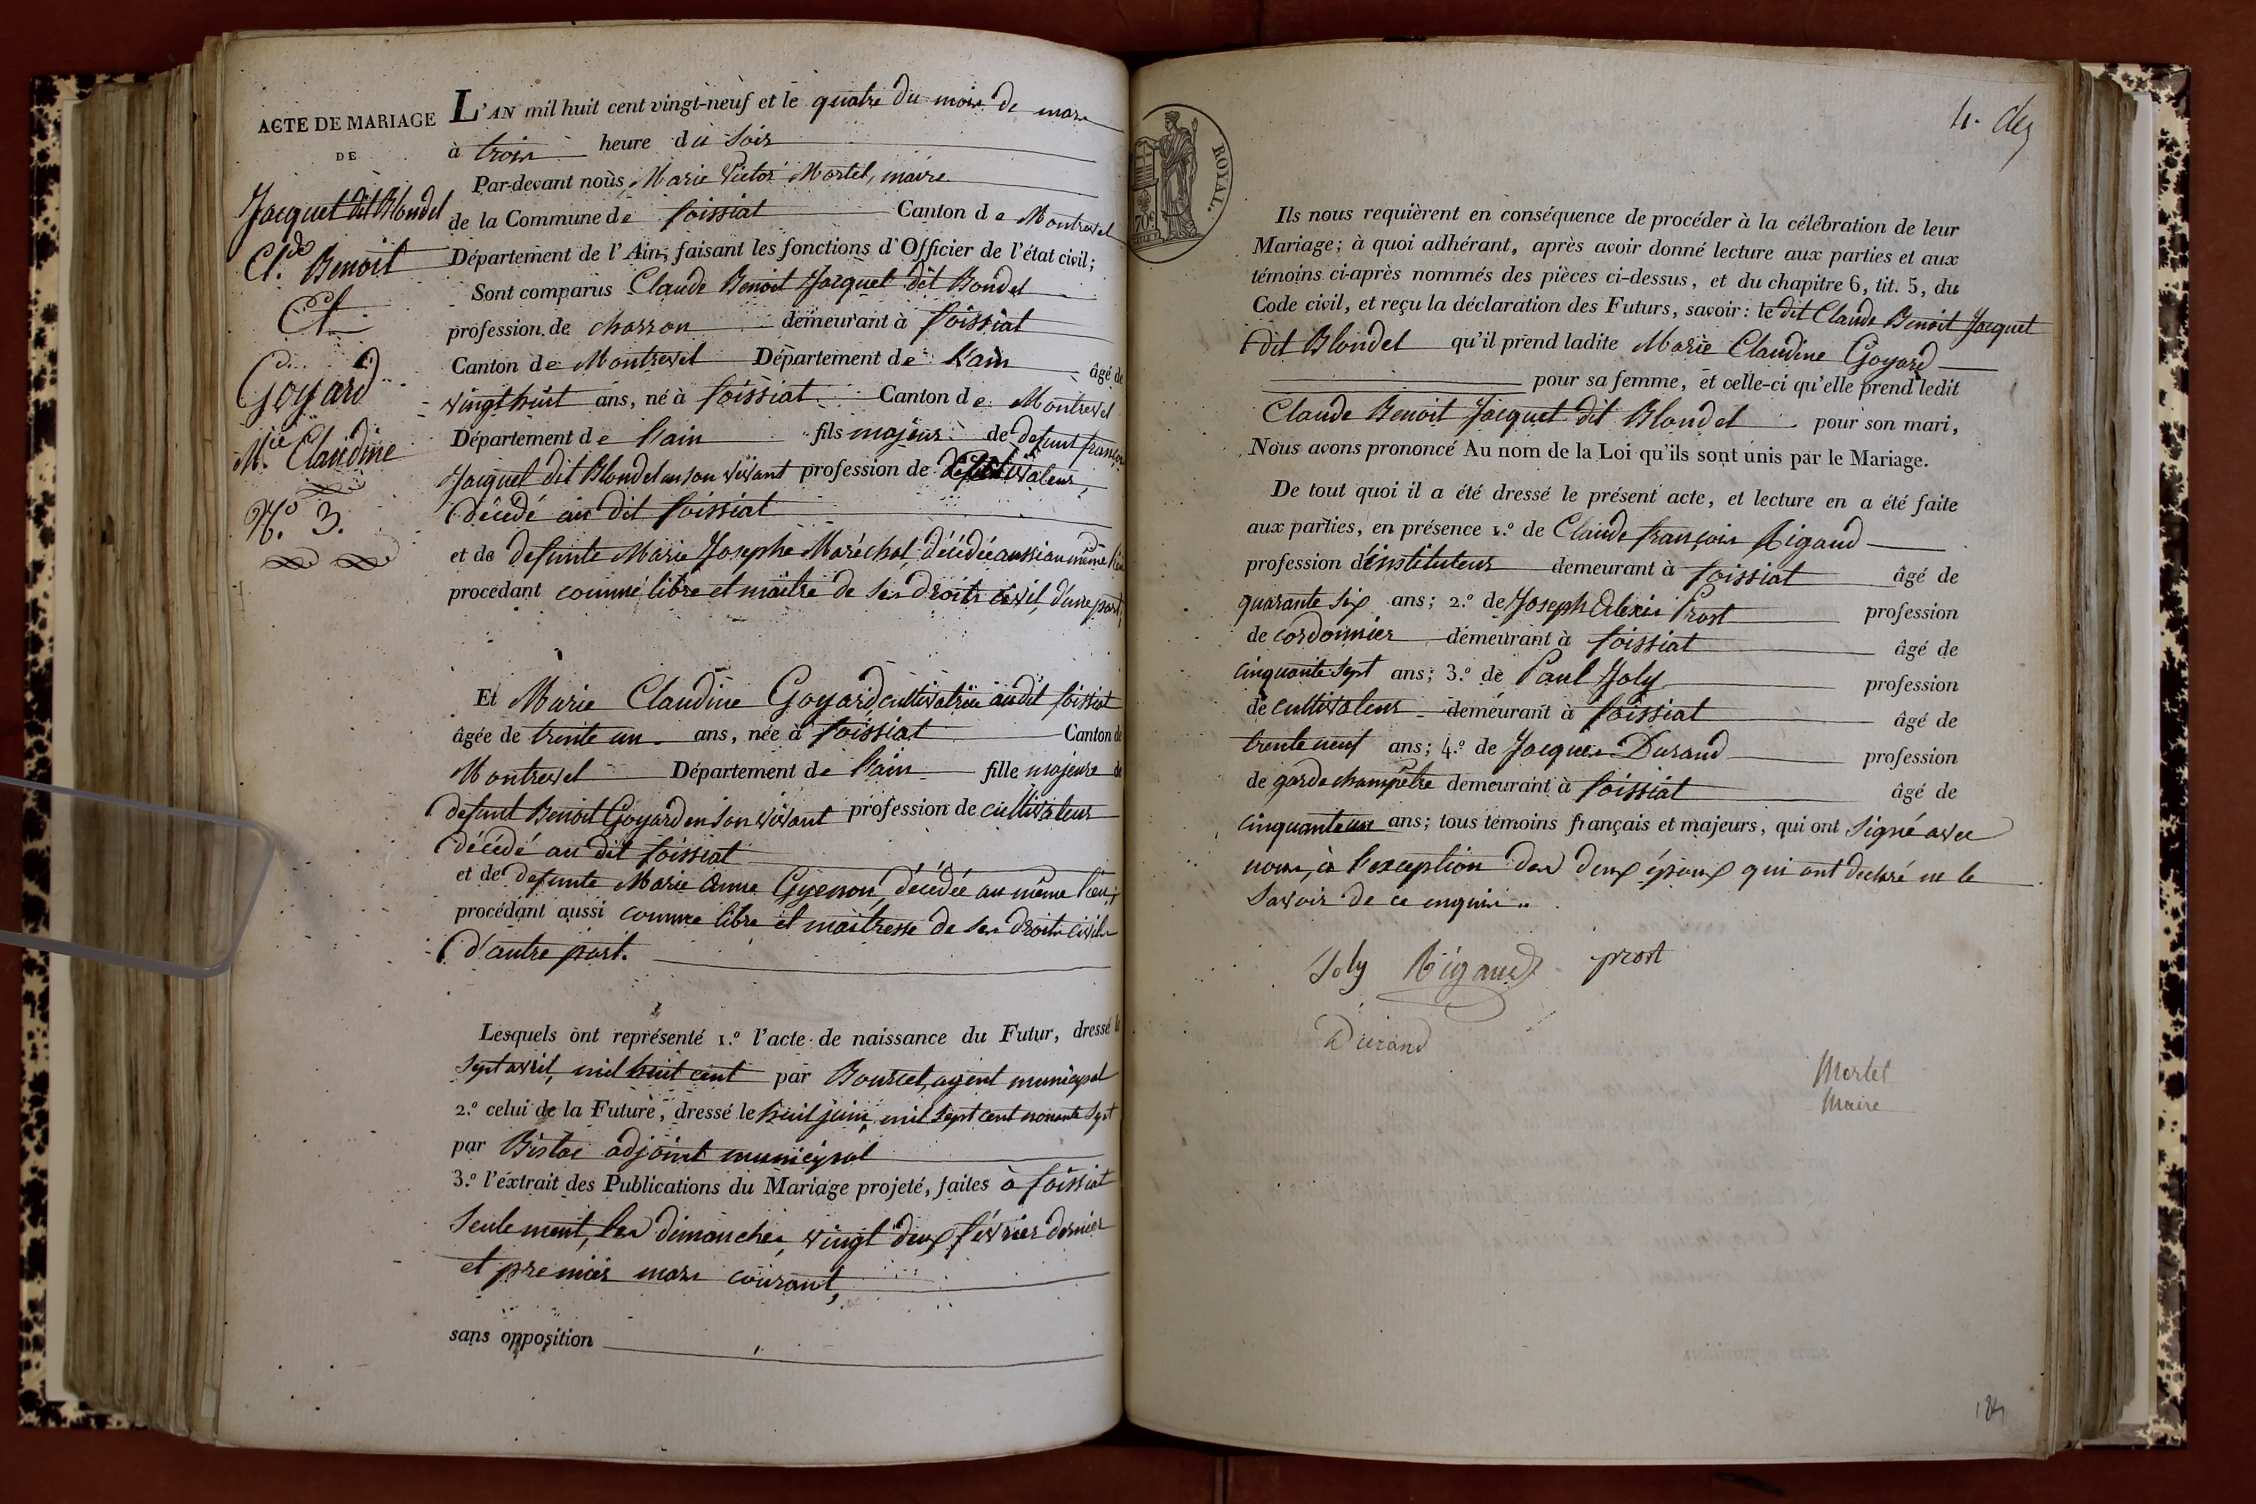 ACTE DE MARIAGE
DE
Jacquet dit Blondel
Cl.de Benoit
Et
Goyard
M.ie Claudine
N.o 3.
L'AN mil huit cent vingt-neuf et le quatre du mois de mars
à trois heure du soir
Par-devant nous, Marie Victor Mortel, maire
de la Commune de foissiat Canton de Montrevel
Département de l'Ain, faisant les fonctions d'Officier de l'état civil;
Sont comparus Claude Benoit Jacquet dit Bondel
profession de charron demeurant à foissiat
Canton de Montrevel Département de l'ain âgé de
vingt huit ans, né à foissiat Canton de Montrevel
Département de l'ain fils majeur de defunt françois
Jacquet dit Blondel en son vivant profession de cultivateur,
décédé au dit foissiat
et de defunte Marie Josephe Maréchal, décédée aussi au même lieu
procédant comme libre et maitre de ses droits civil, d'une part,
Et Marie Claudine Goyard, cultivatrice audit foissiat
âgée de trente un ans, née à foissiat Canton de
Montrevel Département de l'ain fille majeure de
defunt Benoit Goyard en son vivant profession de cultivateur
décédé au dit foissiat
et de defunte Marie Anne Guenon, décédée au même lieu;
procédant aussi comme libre et maitresse de ses droits civils
d'autre part.
Lesquels ont représenté 1.o l'acte de naissance du Futur, dressé le
sept avril, mil huit cent par Bourcet, agent municipal
2.o celui de la Future, dressé le huit juin, mil sept cent nonante sept
par adjoint municipal
3.o l'extrait des Publications du Mariage projeté, faites à foissiat
seulement, les dimanches, vingt deux février dernier
et premier mars courant,
sans opposition
ROYAL.
Ils nous requièrent en conséquence de procéder à la célébration de leur
Mariage; à quoi adhérant, après avoir donné lecture aux parties et aux
témoins ci-après nommés des pièces ci-dessus, et du chapitre 6, tit. 5, du
Code civil, et reçu la déclaration des Futurs, savoir: le dit Claude Benoit Jacquet
dit Blondel qu'il prend ladite Marie Claudine Goyard
pour sa femme, et celle-ci qu'elle prend ledit
Claude Benoit Jacquet dit Blondel pour son mari,
Nous avons prononcé Au nom de la Loi qu'ils sont unis par le Mariage.
De tout quoi il a été dressé le présent acte, et lecture en a été faite
aux parties, en présence 1.o de Claude françois Rigaud
profession d'instituteur demeurant à foissiat âgé de
quarante six ans; 2.o de Joseph Alexis Prost profession
de cordonnier demeurant à foissiat âgé de
cinquante sept ans; 3.o de Paul Joly profession
de cultivateur demeurant à foissiat âgé de
trente neuf ans; 4.o de Jacques Durand profession
de garde champêtre demeurant à foissiat âgé de
cinquante un ans; tous témoins français et majeurs, qui ont signé avec
nous, à l'exception des deux époux qui ont declaré ne le
savoir de ce enquis
Joly Rigaud prost
Durand
Mortel
Maire